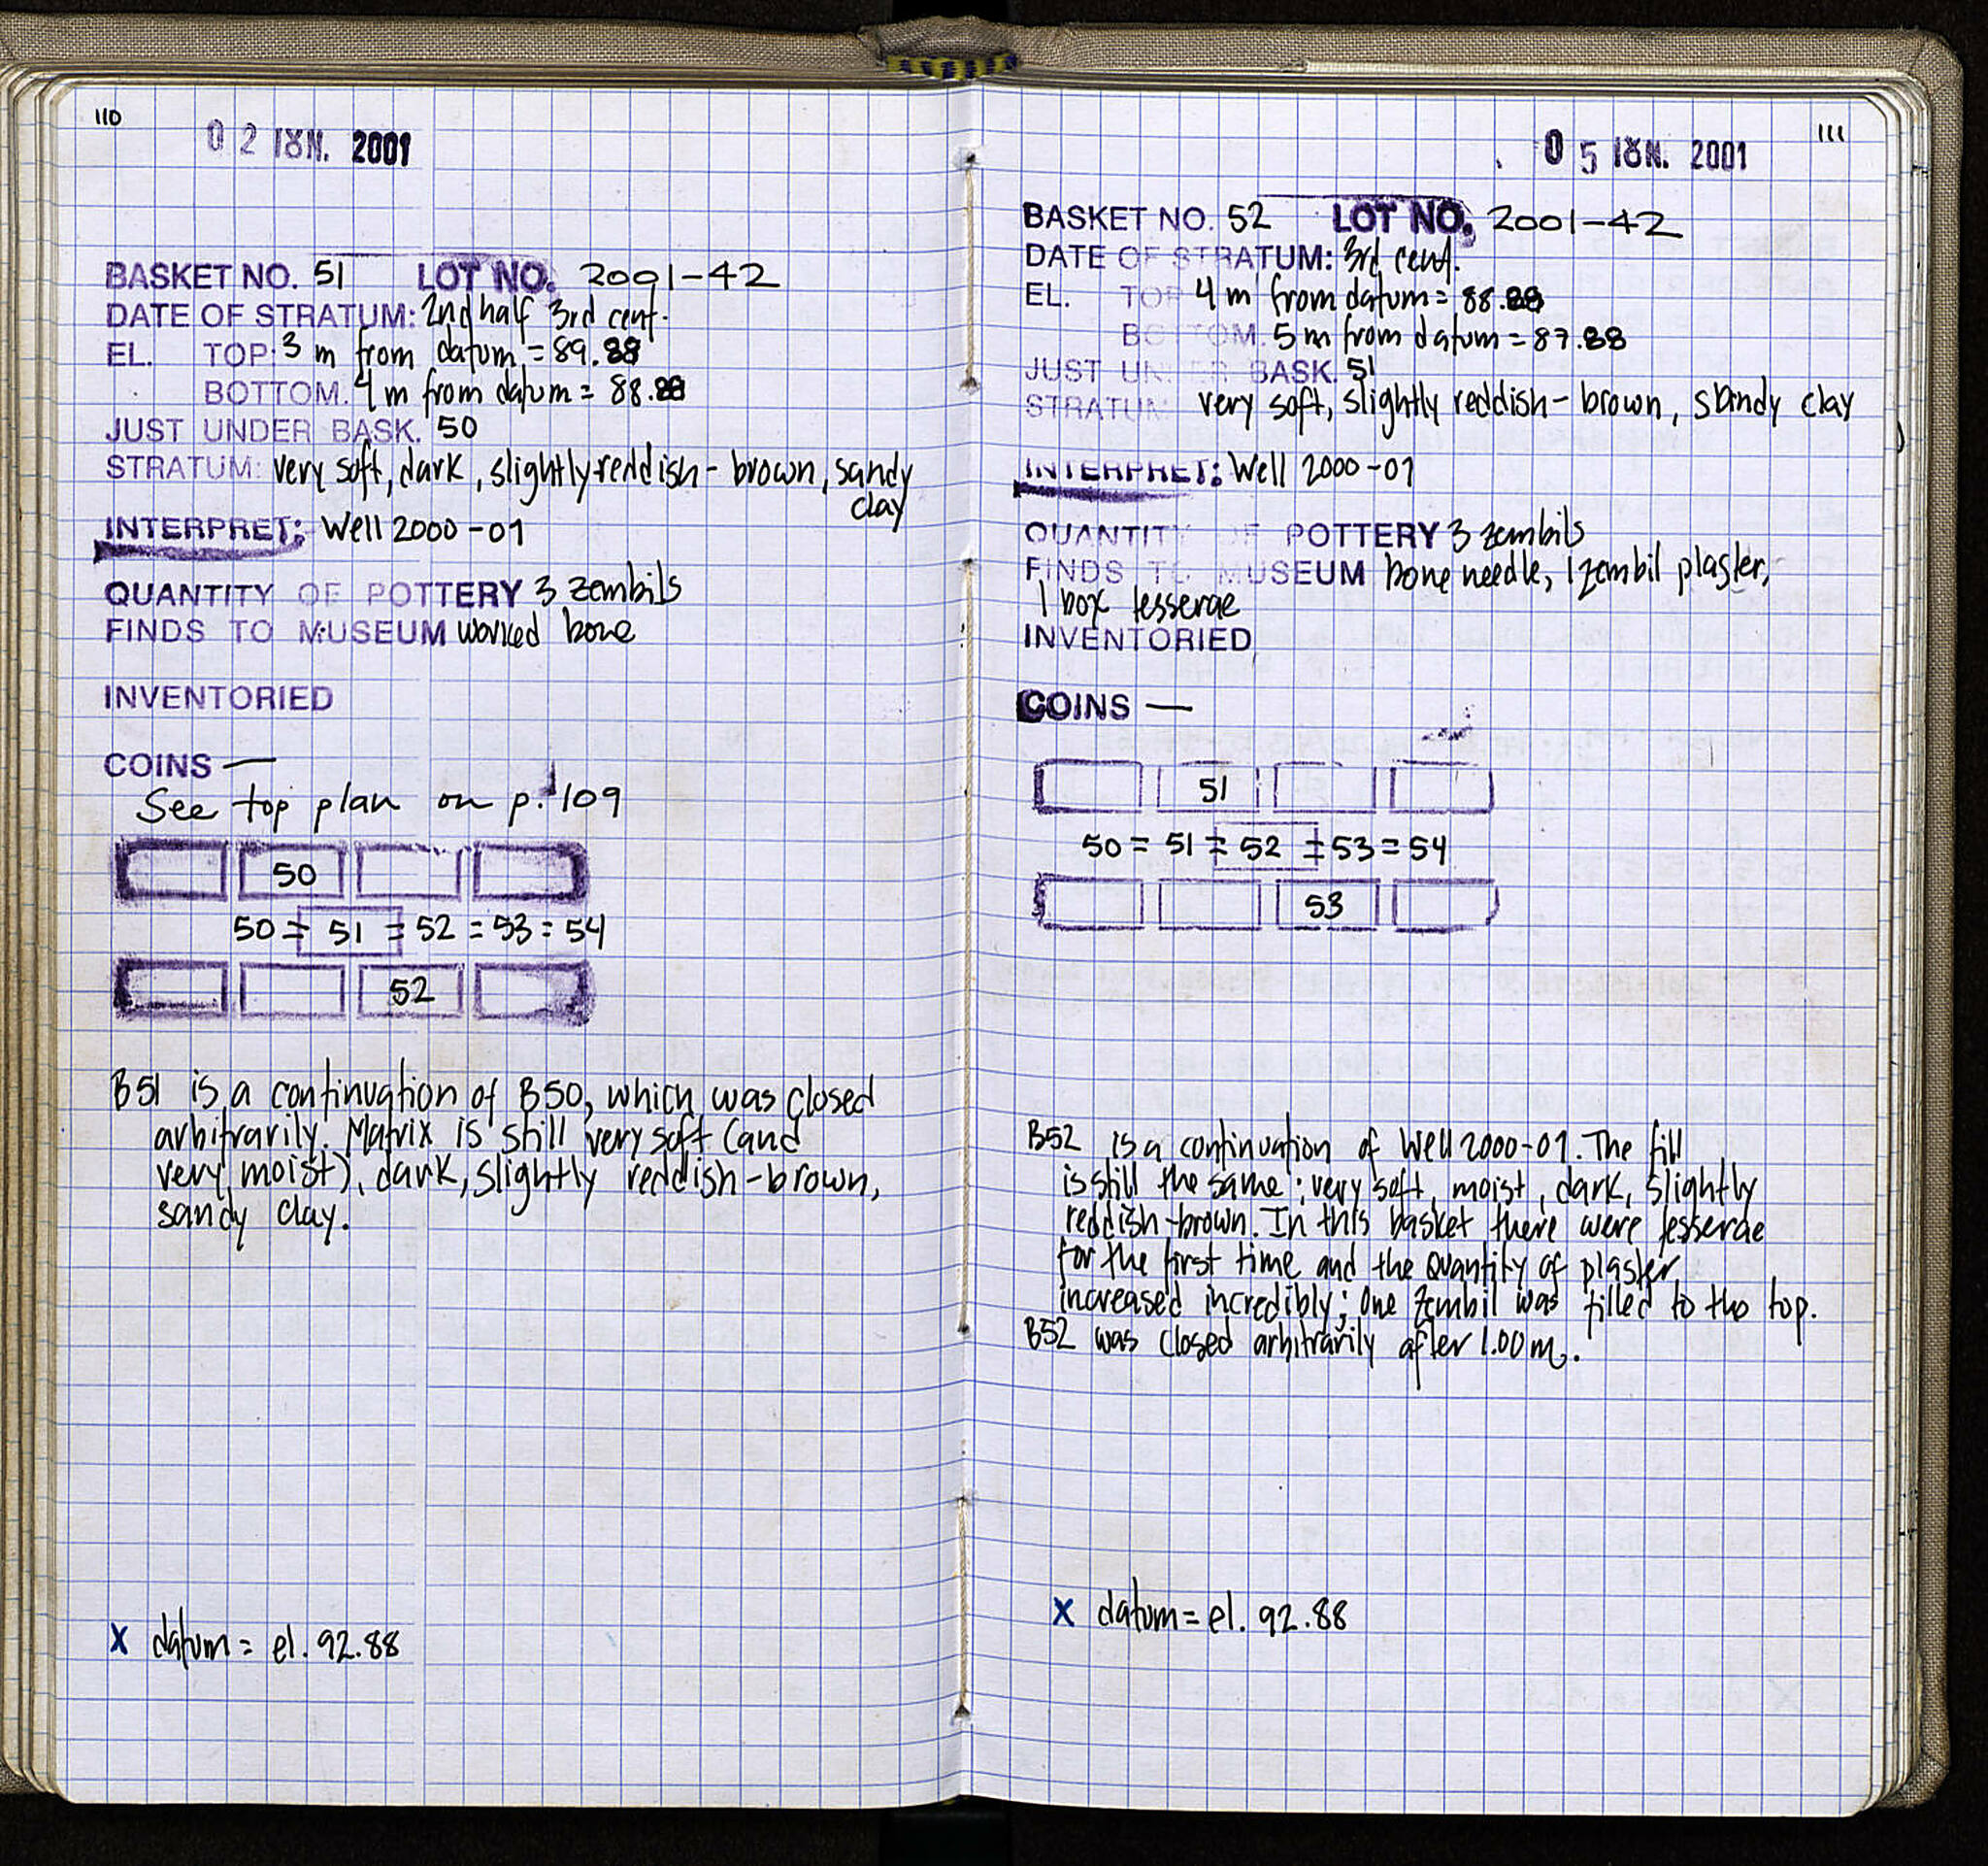 110
02 ΙΟΥΝ. 2001
BASKET NO. 51 LOT NO. 2001-42
DATE OF STRATUM: 2nd half 3rd cent.
EL. TOP: 3 m from datum = 89.88
BOTTOM. 4 m from datum = 88.88
JUST UNDER BASK. 50
STRATUM: very soft, dark, slightly reddish-brown, sandy
clay
INTERPRET: Well 2000-01
QUANTITY OF POTTERY 3 zembils
FINDS TO MUSEUM worked bone
INVENTORIED
COINS —
See top plan on p. 109
50
50 = 51 = 52 = 53 = 54
52
B51 is a continuation of B50, which was closed
arbitrarily. Matrix is still very soft (and
very moist), dark, slightly reddish-brown,
sandy clay.
X datum = el. 92.88
111
05 ΙΟΥΝ. 2001
BASKET NO. 52 LOT NO. 2001-42
DATE OF STRATUM: 3rd cent.
EL. TOP 4 m from datum = 88.88
BOTTOM. 5 m from datum = 87.88
JUST UNDER BASK. 51
STRATUM very soft, slightly reddish-brown, sandy clay
INTERPRET: Well 2000-01
QUANTITY OF POTTERY 3 zembils
FINDS TO MUSEUM bone needle, 1 zembil plaster,
1 box tesserae
INVENTORIED
COINS —
51
50 = 51 = 52 = 53 = 54
53
B52 is a continuation of Well 2000-01. The fill
is still the same: very soft, moist, dark, slightly
reddish-brown. In this basket there were tesserae
for the first time and the quantity of plaster
increased incredibly; one zembil was filled to the top.
B52 was closed arbitrarily after 1.00 m.
X datum = el. 92.88